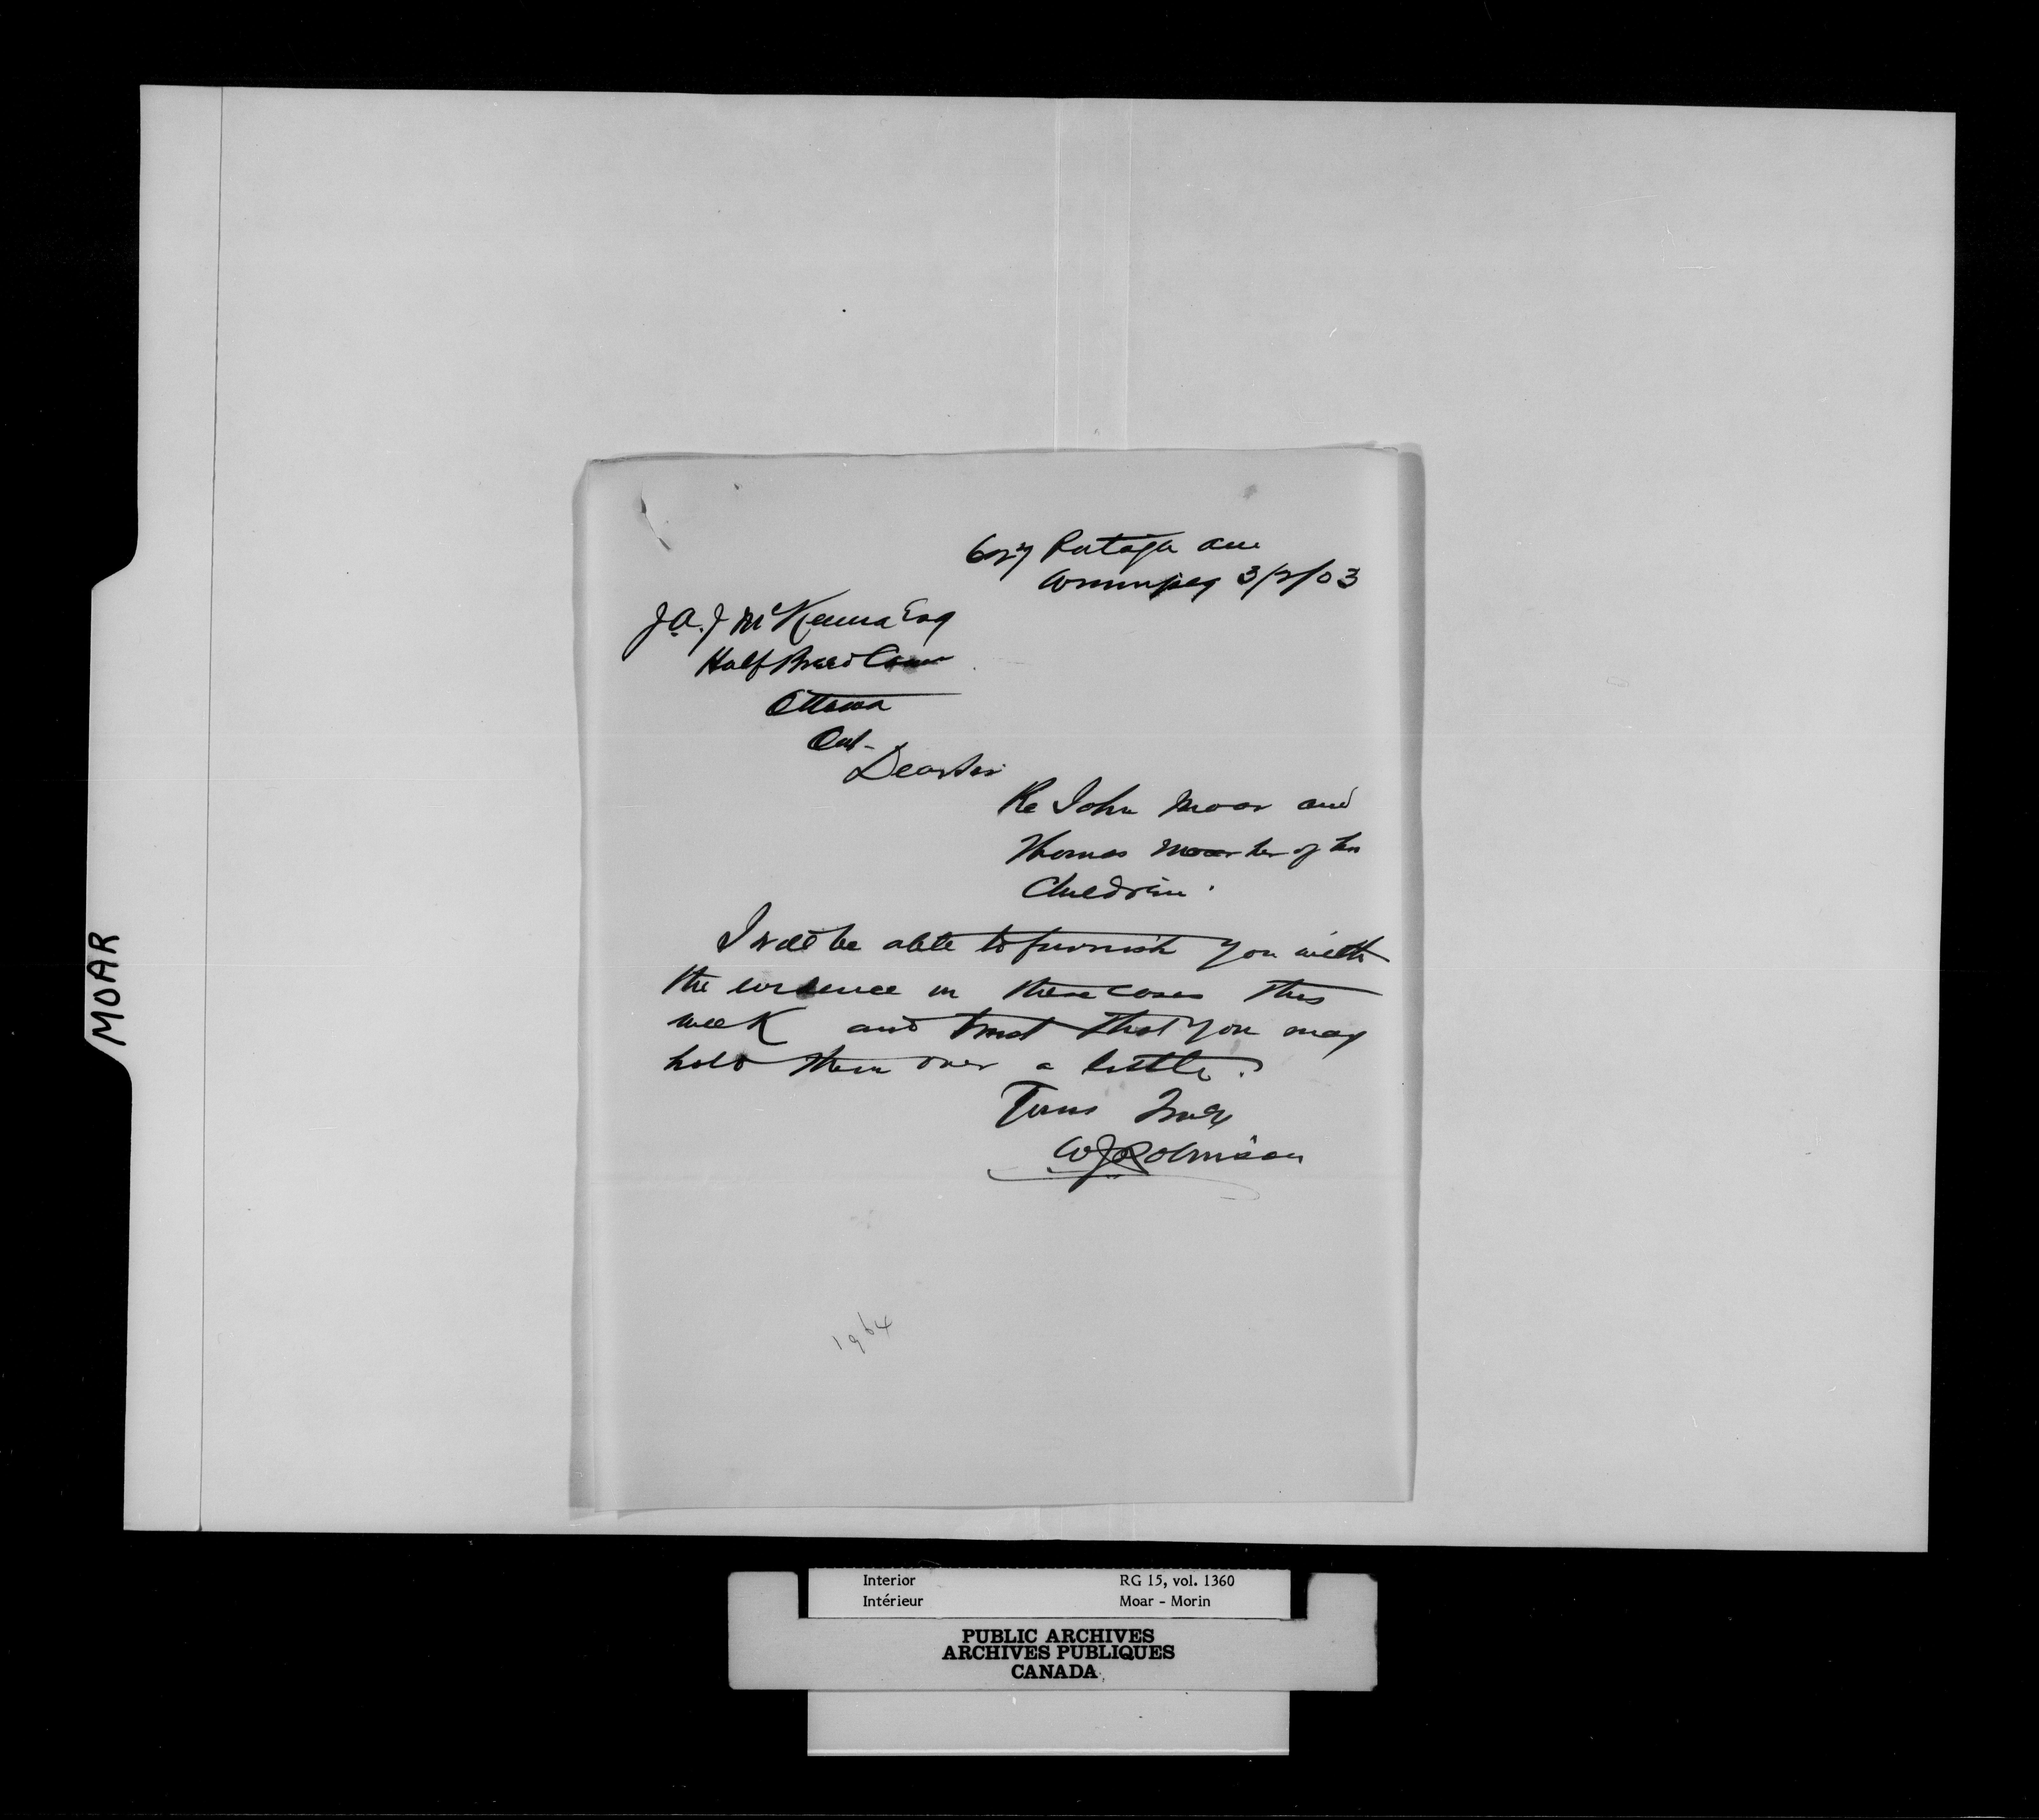 Portage ave
Winnipeg 3/2/03
J.A.J McKenna Esq
Half Breed Com
Ottawa
Ont-
Dear Sir
Re John Moar and
Thomas Moar
Children.
I will be able to furnish you with
the evidence in these cases this
week and trust that you may
hold them over a little.
Yours Truly
WJ Robinson
1964
MOAR
Interior RG 15, vol. 1360
Intérieur Moar - Morin
PUBLIC ARCHIVES
ARCHIVES PUBLIQUES
CANADA